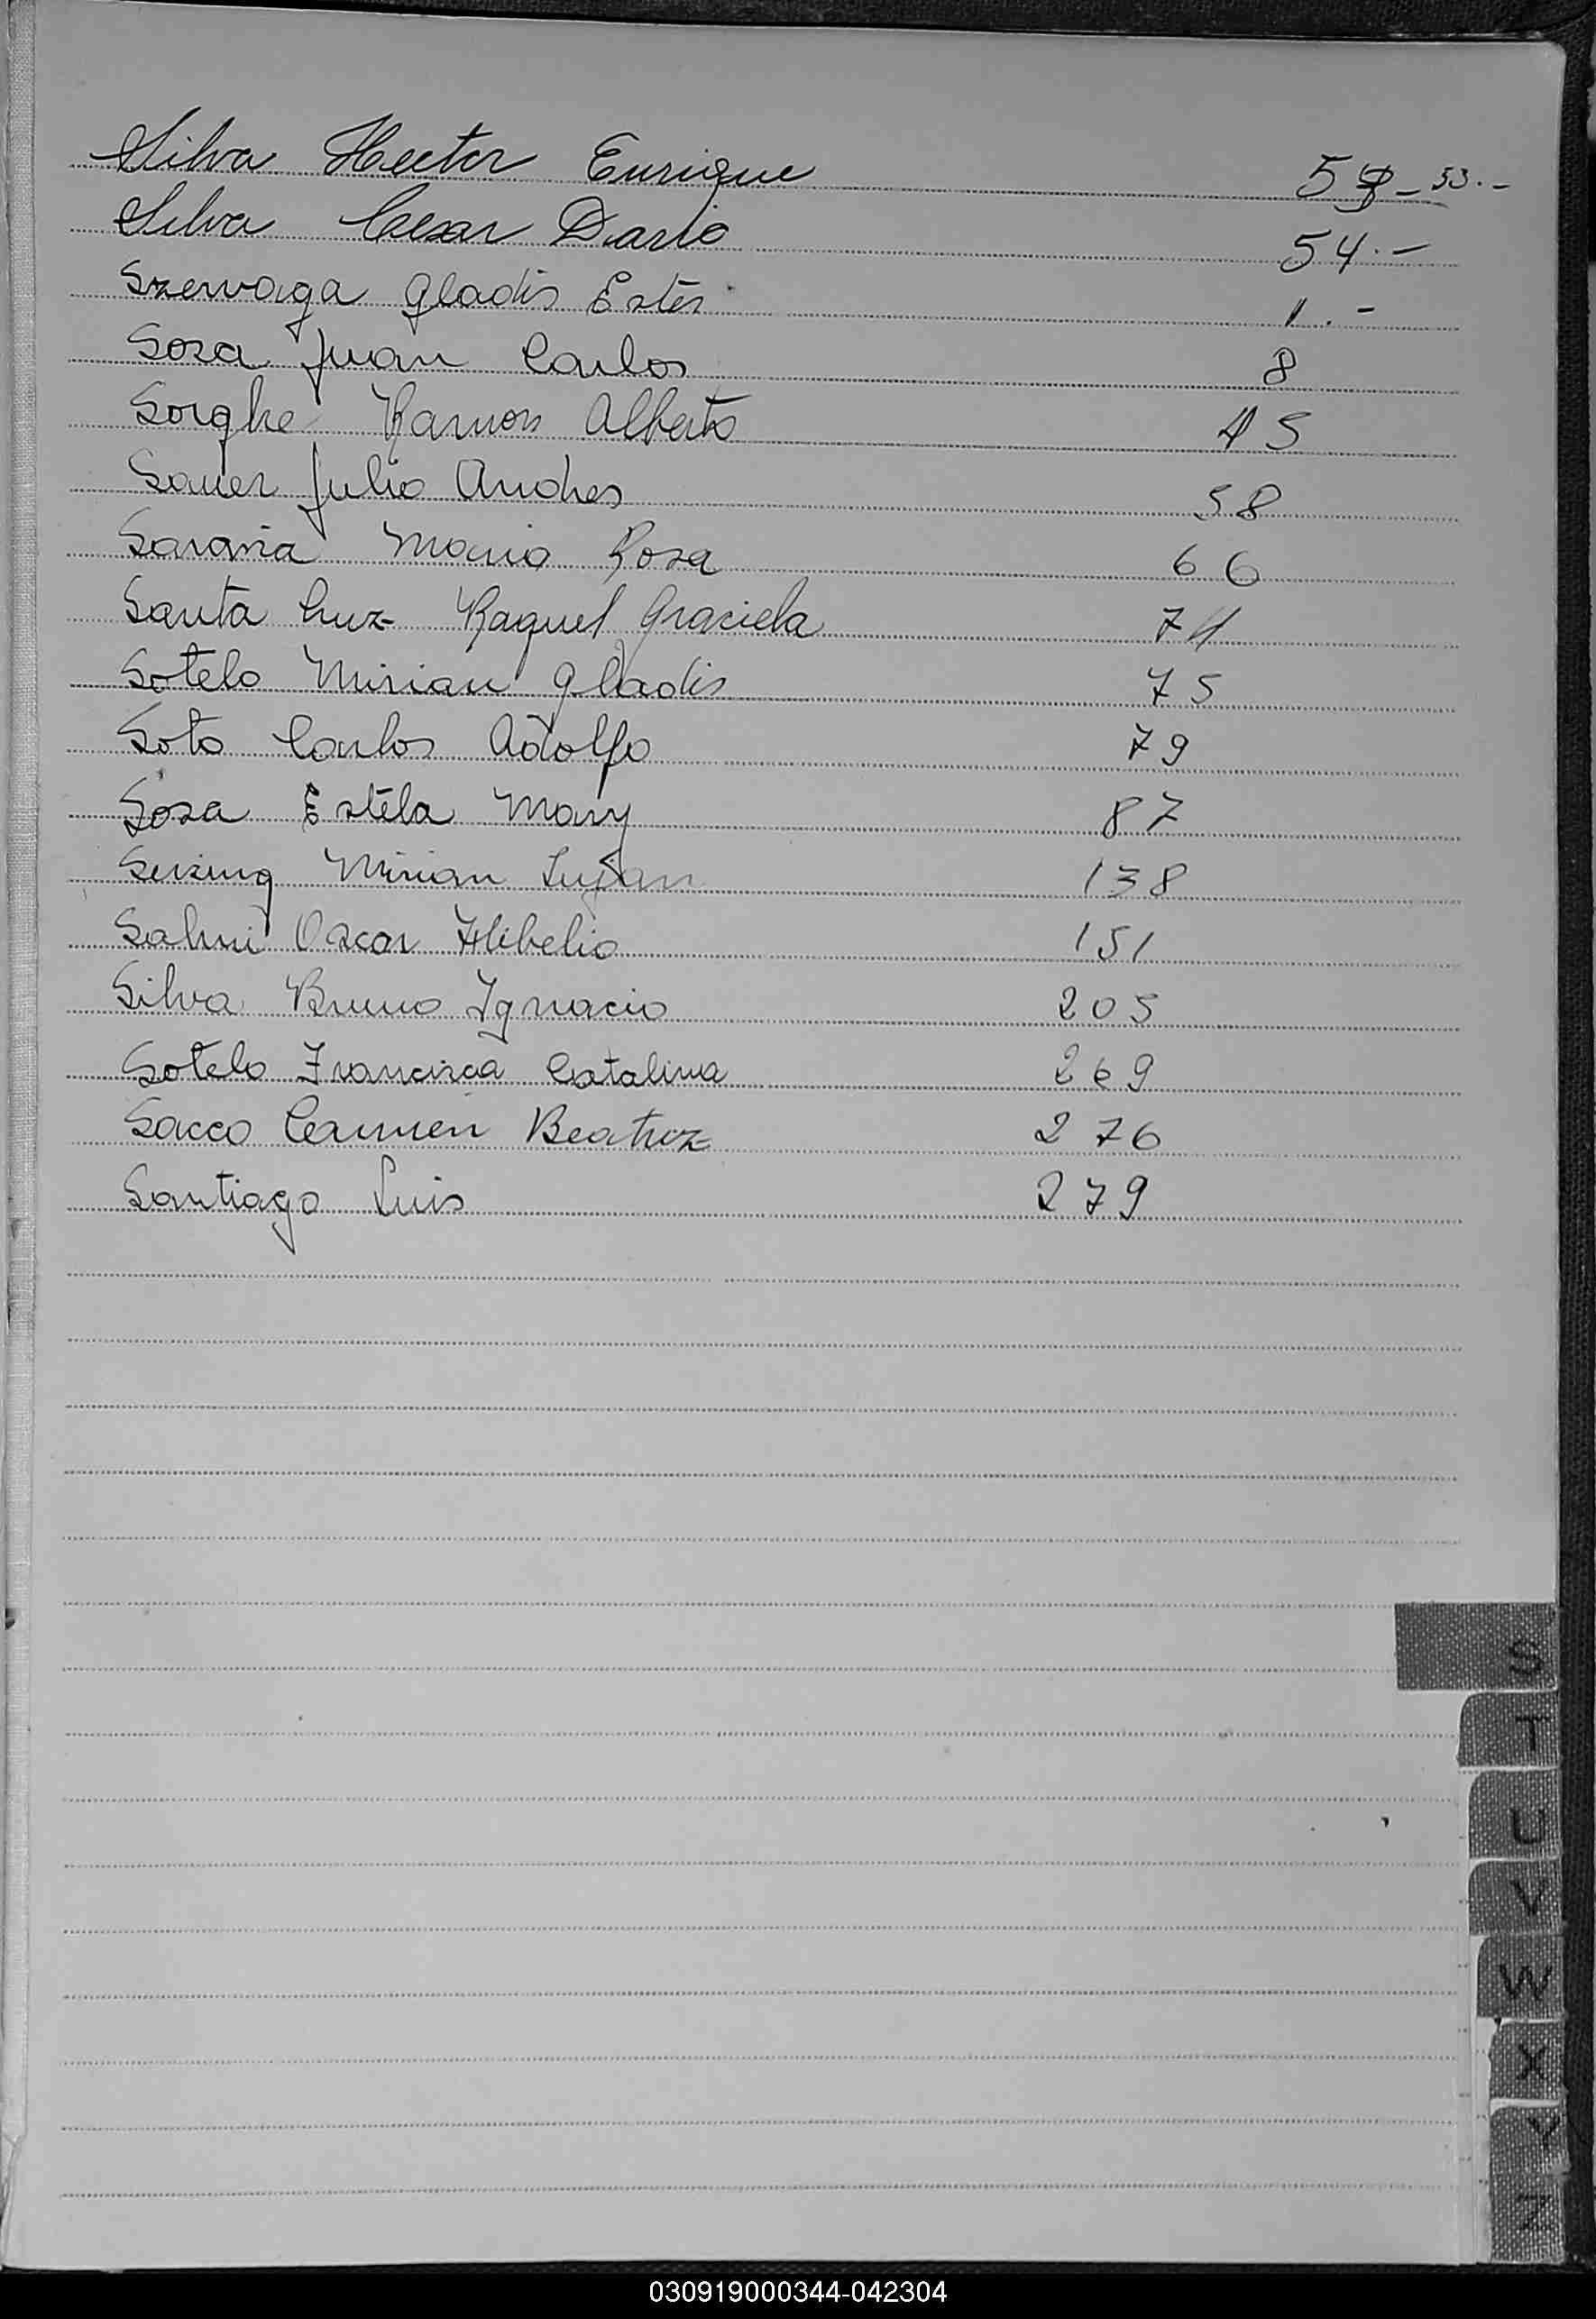 Silva Hector Enrique 53.-
Silva Cesar Dario 54.-
Szewaga Gladis Ester 1.-
Sosa Juan Carlos 8
Ramon Alberto 45
Sauer Julio Andres 58
Maria Rosa 66
Santa Cruz Raquel Graciela 74
Sotelo Mirian Gladis 75
Soto Carlos Adolfo 79
Sosa Estela Mary 87
Mirian Lujan 138
Oscar 151
Silva Bruno Ignacio 205
Sotelo Francisca Catalina 269
Sacco Carmen Beatriz 276
Santiago Luis 279
S
T
U
V
W
X
Y
Z
030919000344-042304